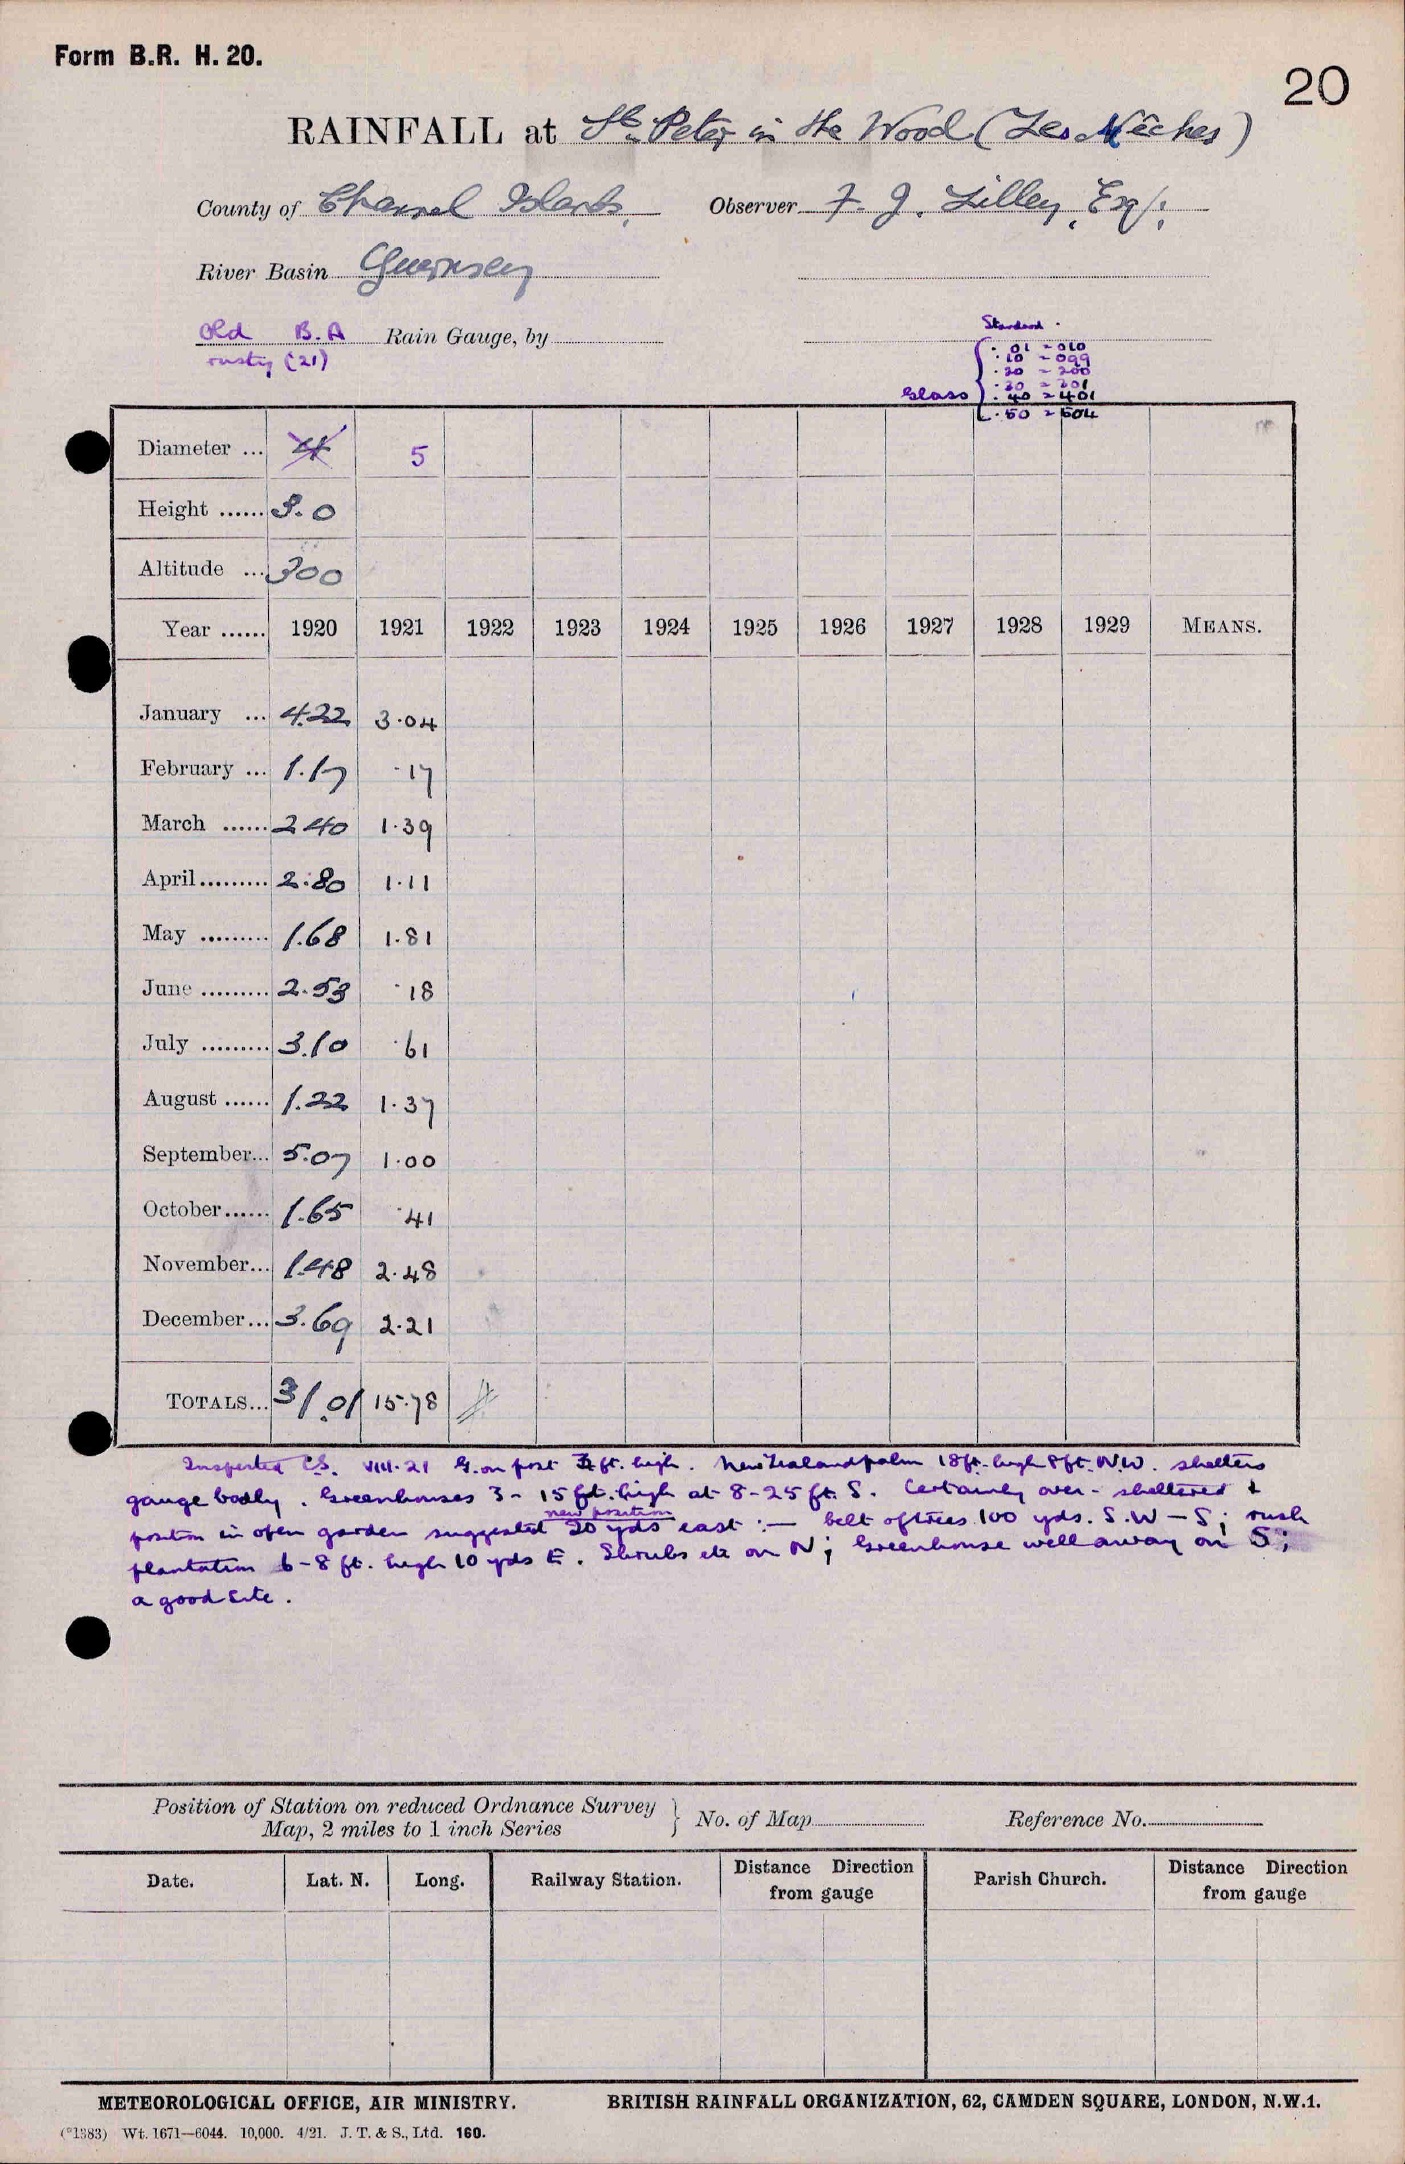 Form B.R. H. 20.
20
RAINFALL at St. Peter in the Wood (Les Mêches)
County of Channel Islands. Observer F. J. Lilley, Esq.
River Basin Guernsey
Old B.A Rain Gauge, by
rusty (21)
Standard.
.01 = 010
.10 = 099
.20 = 200
.30 = 301
Glass .40 = 401
.50 = 504
Diameter ... 4 5
Height ...... 3.0
Altitude ... 300
Year ...... 1920 1921 1922 1923 1924 1925 1926 1927 1928 1929 MEANS.
January ... 4.22 3.04
February ... 1.17 .17
March ...... 2.40 1.39
April ......... 2.80 1.11
May ......... 1.68 1.81
June ......... 2.53 .18
July ......... 3.10 .61
August ...... 1.22 1.37
September... 5.07 1.00
October ...... 1.65 .41
November... 1.48 2.48
December... 3.69 2.21
TOTALS... 31.01 15.78
Inspected C.S. VIII.21 G. on post ft. high. New Zealand palm 18 ft. high 8 ft. N.W. shelters
gauge badly. Greenhouses 3 - 15 ft. high at 8-25 ft. S. Certainly over-sheltered &
new position
position in open garden suggested 20 yds east :— belt of trees 100 yds. S.W - S; rush
plantation 6-8 ft. high 10 yds E. Shrubs etc on N; Greenhouse well away on S;
a good site.
Position of Station on reduced Ordnance Survey
Map, 2 miles to 1 inch Series } No. of Map Reference No.
Date. Lat. N. Long. Railway Station. Distance Direction from gauge Parish Church. Distance Direction from gauge
METEOROLOGICAL OFFICE, AIR MINISTRY. BRITISH RAINFALL ORGANIZATION, 62, CAMDEN SQUARE, LONDON, N.W.1.
(*1383) Wt. 1671—6044. 10,000. 4/21. J. T. & S., Ltd. 160.